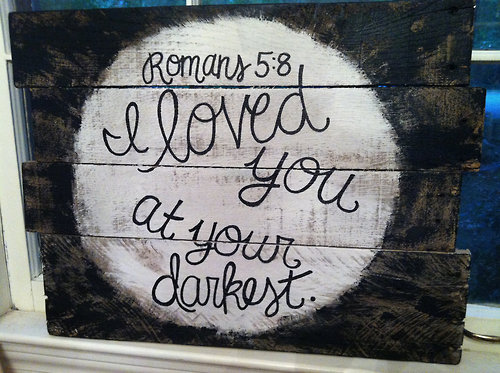 Romans 5:8
I loved
you
at your
darkest.